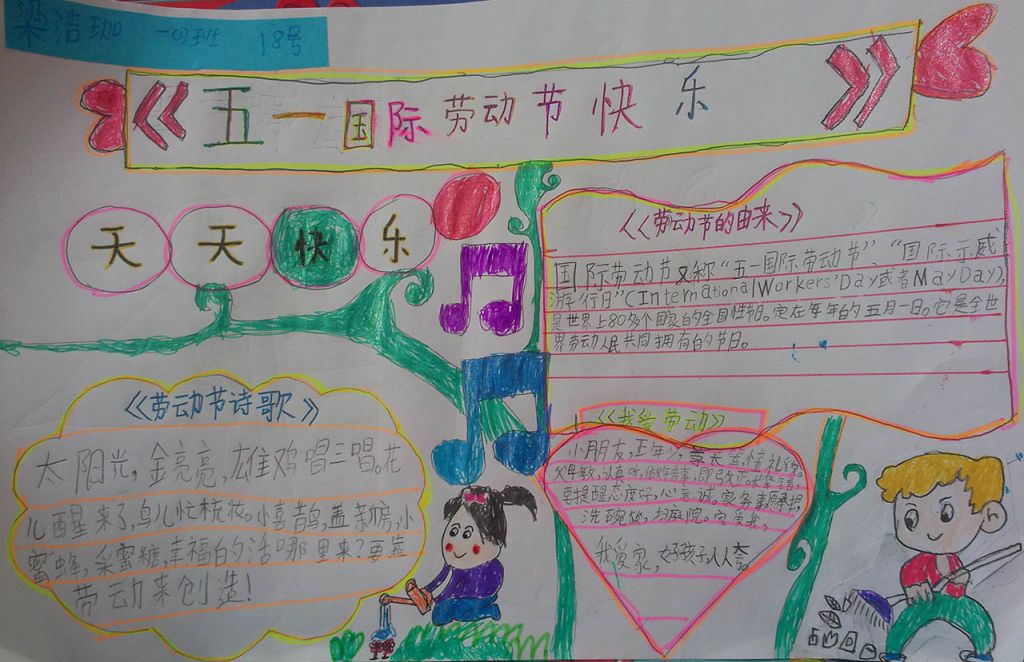 梁浩珈 一(1)班 18号
《五一国际劳动节快乐》
天天快乐
《劳动节的由来》
国际劳动节又称“五一国际劳动节”、“国际示威
游行日”(International Workers'Day或者MayDay),
是世界上80多个国家的全国性节日。定在每年的五月一日。它是全世
界劳动人民共同拥有的节日。
《劳动节诗歌》
太阳光,金亮亮,雄鸡唱三唱。花
儿醒来了,鸟儿忙梳妆。小喜鹊,盖新房,小
蜜蜂,采蜜糖,幸福的生活哪里来?要靠
劳动来创造!
《我爱劳动》
小朋友,正年少,尊长
父母教,认真听,做错事,即
要提醒,态度好,心
洗碗筷,扫庭院。
我爱家,好孩子,人人夸。